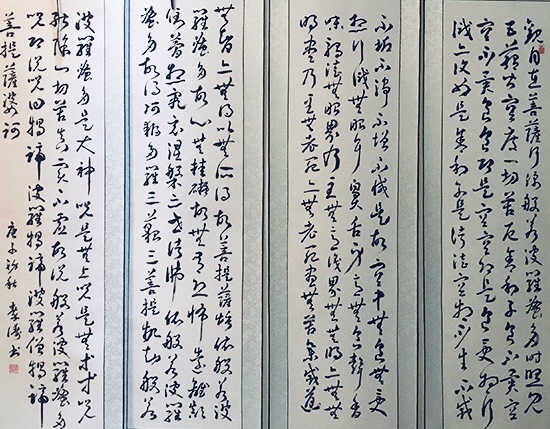 觀自在菩薩行深般若波羅蜜多時照見
五蘊皆空度一切苦厄舍利子色不異空
空不異色色即是空空即是色受想行
識亦復如是舍利子是諸法空相不生不滅
不垢不淨不增不減是故空中無色無受
想行識無眼耳鼻舌身意無色聲香
味觸法無眼界乃至無意識界無無明亦無無
明盡乃至無老死亦無老死盡無苦集滅道
無智亦無得以無所得故菩提薩埵依般若波
羅蜜多故心無挂礙故無有恐怖遠離顛
倒夢想究竟涅槃三世諸佛依般若波羅
蜜多故得阿耨多羅三藐三菩提故知般若
波羅蜜多是大神咒是無上咒是無等等咒
能除一切苦真實不虛故說般若波羅蜜多
咒即說咒曰揭諦波羅揭諦波羅僧揭諦
菩提薩婆訶
庚子初秋 李濤書